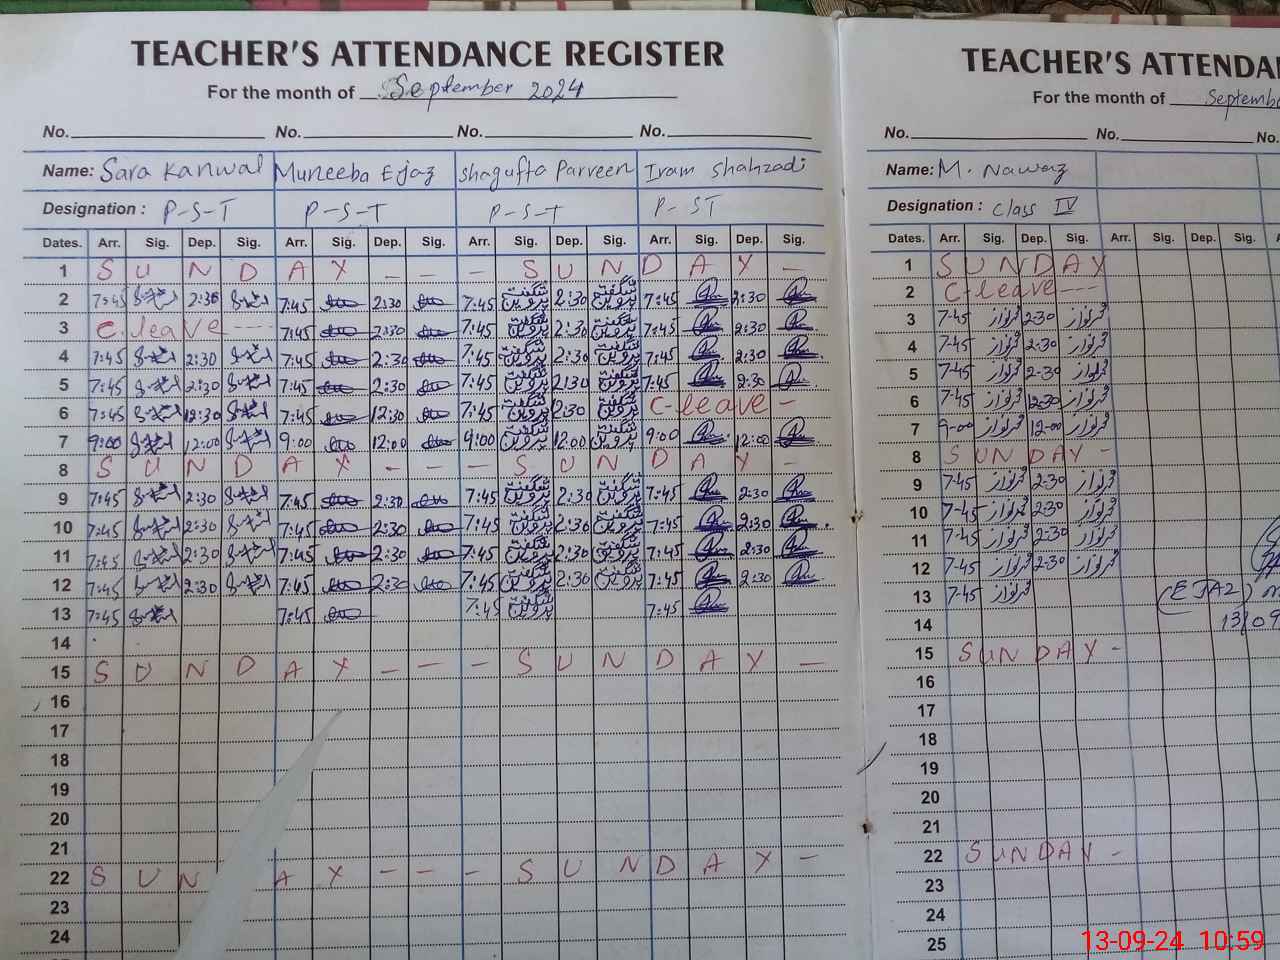 TEACHER'S ATTENDANCE REGISTER
For the month of September 2024
No. No. No. No.
Name: Sara Kanwal Muneeba Ejaz Shagufta Parveen Iram Shahzadi
Designation : P-S-T P-S-T P-S-T P-ST
Dates. Arr. Sig. Dep. Sig. Arr. Sig. Dep. Sig. Arr. Sig. Dep. Sig. Arr. Sig. Dep. Sig.
1 S U N D A Y - - - S U N D A Y -
2 7:45 2:30 7:45 2:30 7:45 شگفتہ پروین 2:30 شگفتہ پروین 7:45 2:30
3 C.leave ---- 7:45 2:30 7:45 شگفتہ پروین 2:30 شگفتہ پروین 7:45 2:30
4 7:45 2:30 7:45 2:30 7:45 شگفتہ پروین 2:30 شگفتہ پروین 7:45 2:30
5 7:45 2:30 7:45 2:30 7:45 شگفتہ پروین 2:30 شگفتہ پروین 7:45 2:30
6 7:45 12:30 7:45 12:30 7:45 شگفتہ پروین 2:30 شگفتہ پروین C-leave -
7 9:00 12:00 9:00 12:00 9:00 شگفتہ پروین 12:00 شگفتہ پروین 9:00 12:00
8 S U N D A Y - - - S U N D A Y -
9 7:45 2:30 7:45 2:30 7:45 شگفتہ پروین 2:30 شگفتہ پروین 7:45 2:30
10 7:45 2:30 7:45 2:30 7:45 شگفتہ پروین 2:30 شگفتہ پروین 7:45 2:30
11 7:45 2:30 7:45 2:30 7:45 شگفتہ پروین 2:30 شگفتہ پروین 7:45 2:30
12 7:45 2:30 7:45 2:30 7:45 شگفتہ پروین 2:30 شگفتہ پروین 7:45 2:30
13 7:45 7:45 7:45 شگفتہ پروین 7:45
14
15 S U N D A Y - - - S U N D A Y -
16
17
18
19
20
21
22 S U N A Y - - - S U N D A Y -
23
24
TEACHER'S ATTENDA
For the month of Septemb
No. No. No.
Name: M. Nawaz
Designation : Class IV
Dates. Arr. Sig. Dep. Sig. Arr. Sig. Dep. Sig. A
1 S U N D A Y
2 C-leave ---
3 7-45 محمد نواز 2-30 محمد نواز
4 7-45 محمد نواز 2-30 محمد نواز
5 7-45 محمد نواز 2-30 محمد نواز
6 7-45 محمد نواز 12-30 محمد نواز
7 9-00 محمد نواز 12-00 محمد نواز
8 S U N D A Y -
9 7-45 محمد نواز 2-30 محمد نواز
10 7-45 محمد نواز 2-30 محمد نواز
11 7-45 محمد نواز 2-30 محمد نواز
12 7-45 محمد نواز 2-30 محمد نواز
13 7-45 محمد نواز
14 13/09
15 SUNDAY -
16
17
18
19
20
21
22 SUNDAY -
23
24
25
13-09-24 10:59